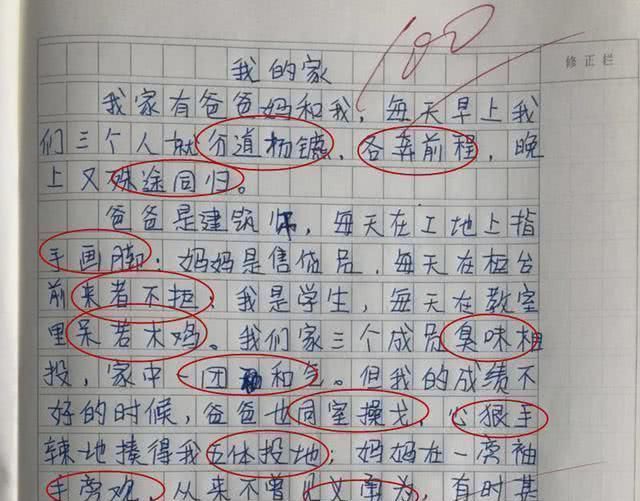 100
修正栏
我的家
我家有爸爸妈和我，每天早上我
们三个人就分道杨镳，各奔前程，晚
上又殊途同归。
爸爸是建筑师，每天在工地上指
手画脚；妈妈是售货员，每天在柜台
前来者不拒；我是学生，每天在教室
里呆若木鸡。我们家三个成员臭味相
投，家中一团和气。但我的成绩不
好的时候，爸爸也同室操戈，心狠手
辣地揍得我五体投地；妈妈在一旁袖
手旁观，从来不曾见义勇为，有时甚